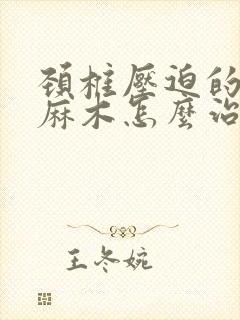 頸椎壓迫的
麻木怎麼治
王冬婉